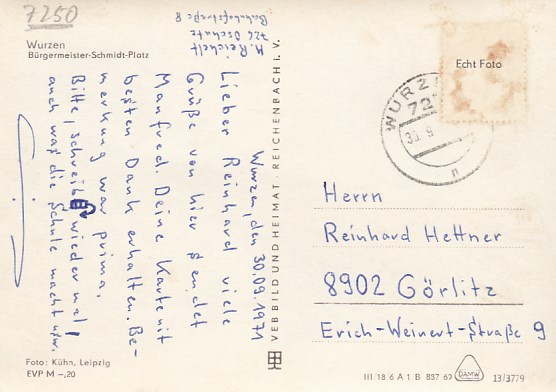 7250
Wurzen
Bürgermeister-Schmidt-Platz
M. Reichelt
726 Oschatz
Bahnhofstraße 8
Wurzen, den 30.09.1971
Lieber Reinhard viele
Grüße von hier sendet
Manfred. Deine Karte mit
besten Dank erhalten. Be-
merkung war prima.
Bitte, schreib wieder mal
auch was die Schule macht usw.
Foto: Kühn, Leipzig
EVP M –,20
VEB BILD UND HEIMAT · REICHENBACH i. V.
Echt Foto
WURZ
72
30. 9
n
Herrn
Reinhard Hettner
8902 Görlitz
Erich-Weinert-Straße 9
III/18/6 A 1 B 837 69
DAMW
13/3779